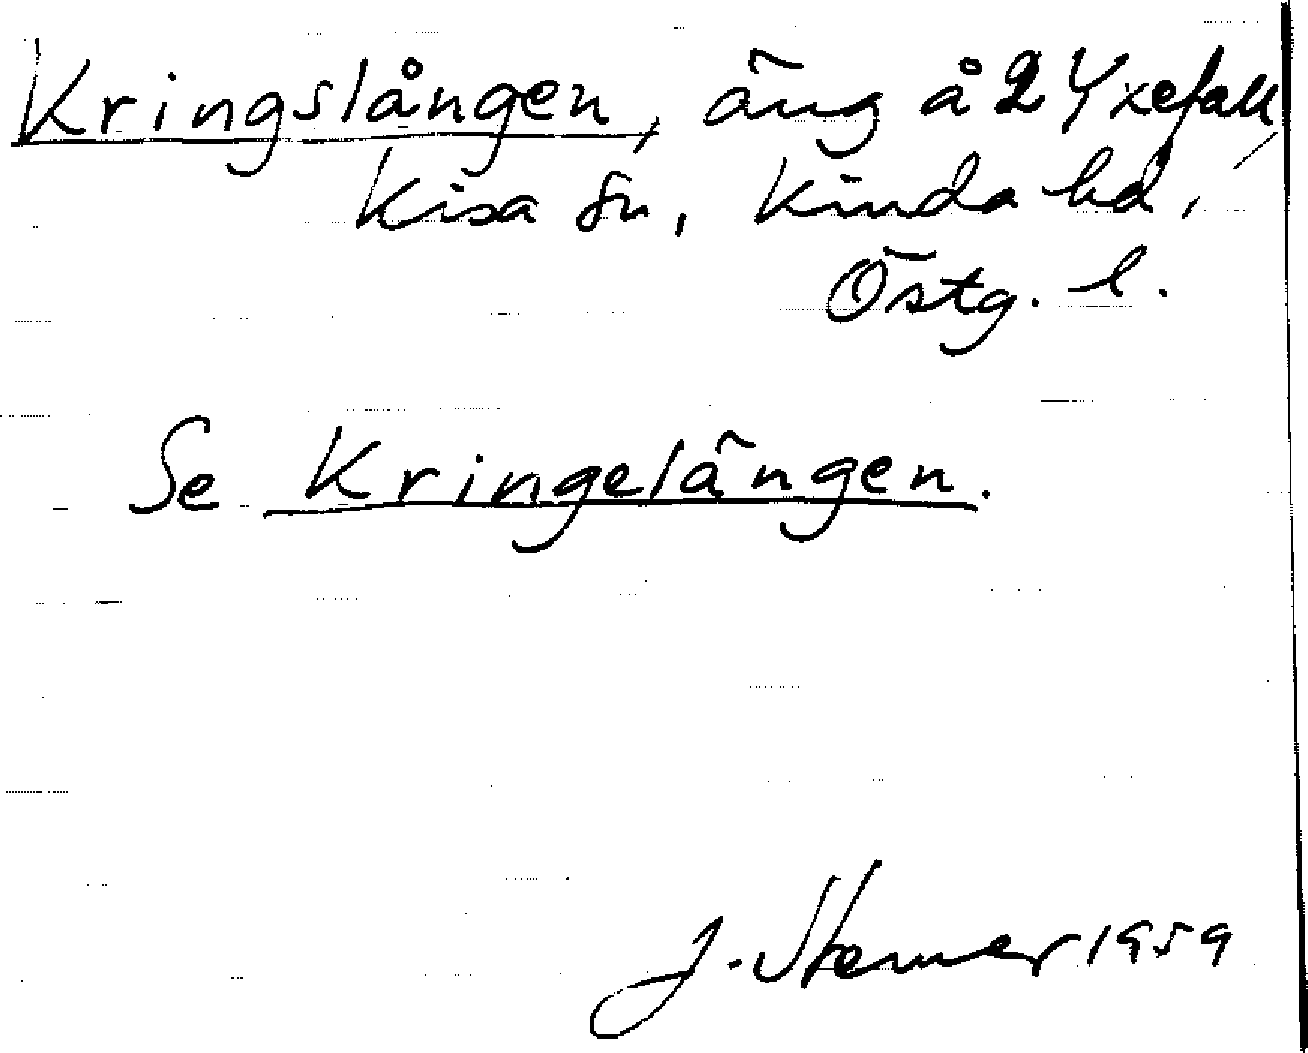 Kringslången, äng å 2 Yxefall,
Kisa sn, Kinda hd,
Östg. l.
Se Kringelängen.
J. 1959